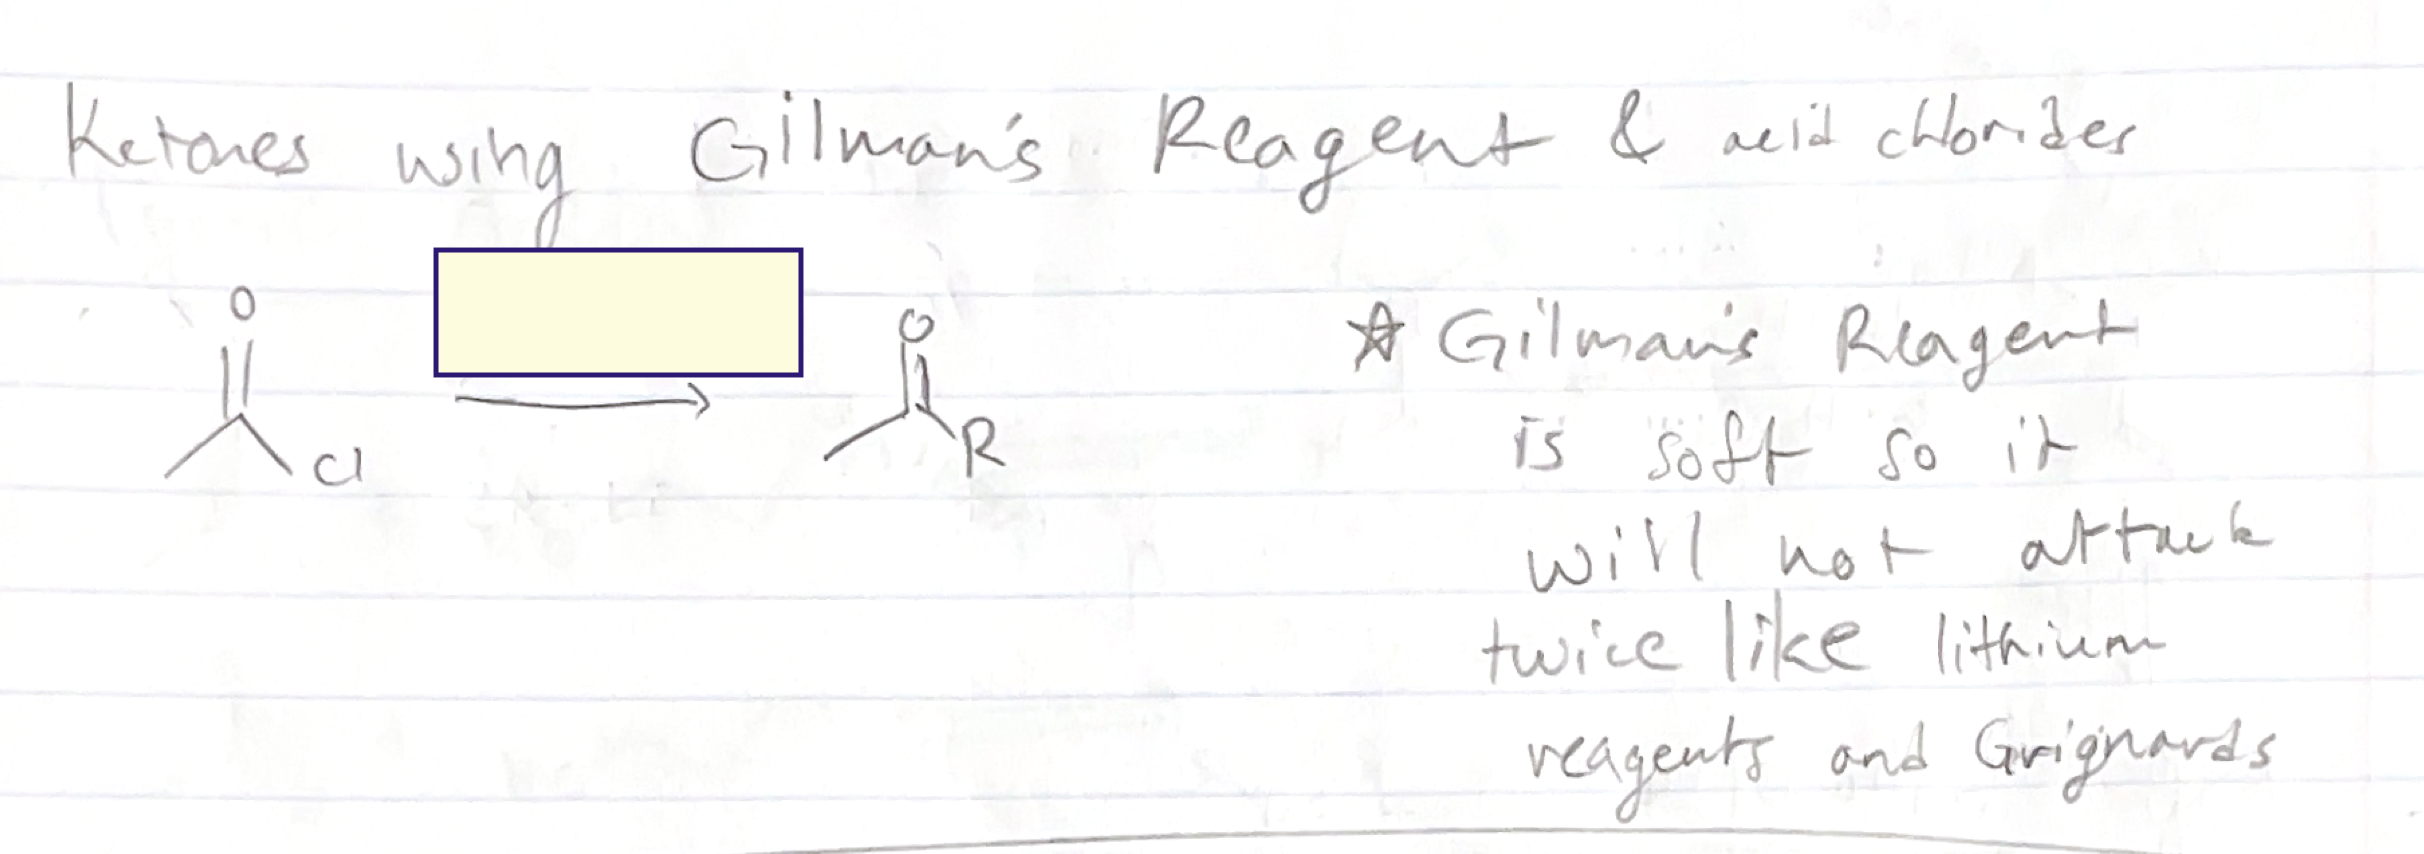 Ketones using Gilman's Reagent & acid chlorides
O
Cl
O
R
☆ Gilman's Reagent
is soft so it
will not attack
twice like lithium
reagents and Grignards